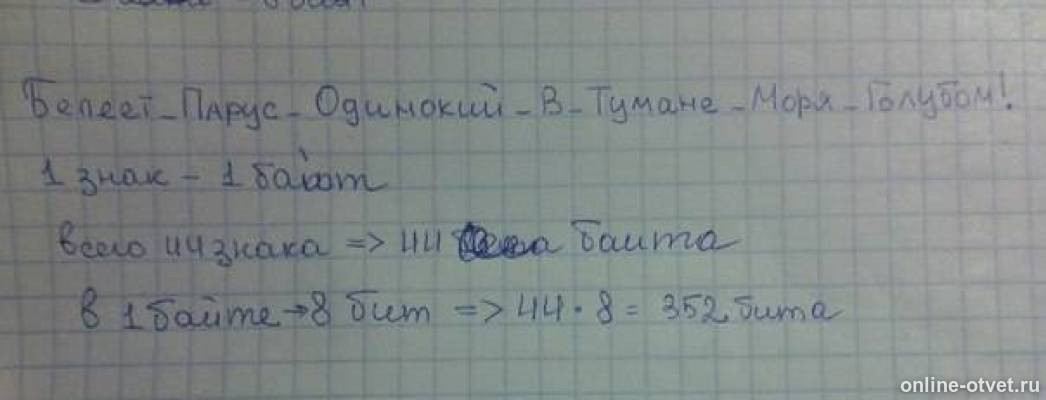 Белеет_Парус_Одинокий_В_Тумане_Моря_Голубом!
1 знак - 1 байт
всего 44 знака => 44 байта
в 1 байте → 8 бит => 44 · 8 = 352 бита
online-otvet.ru